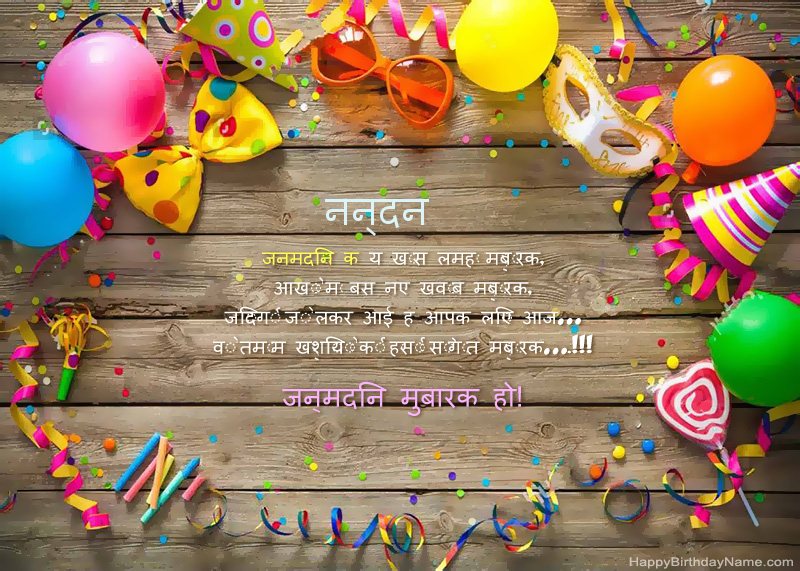 नन्दन
जनमदिन क य खास लमह मबारक,
आखों म बस नए खवाब मबारक,
जिदगी जो लकर आई ह आपक लिए आज...
वो तमाम खशियों की हसी सौगात मबारक...!!!
जन्मदिन मुबारक हो!
HappyBirthdayName.com